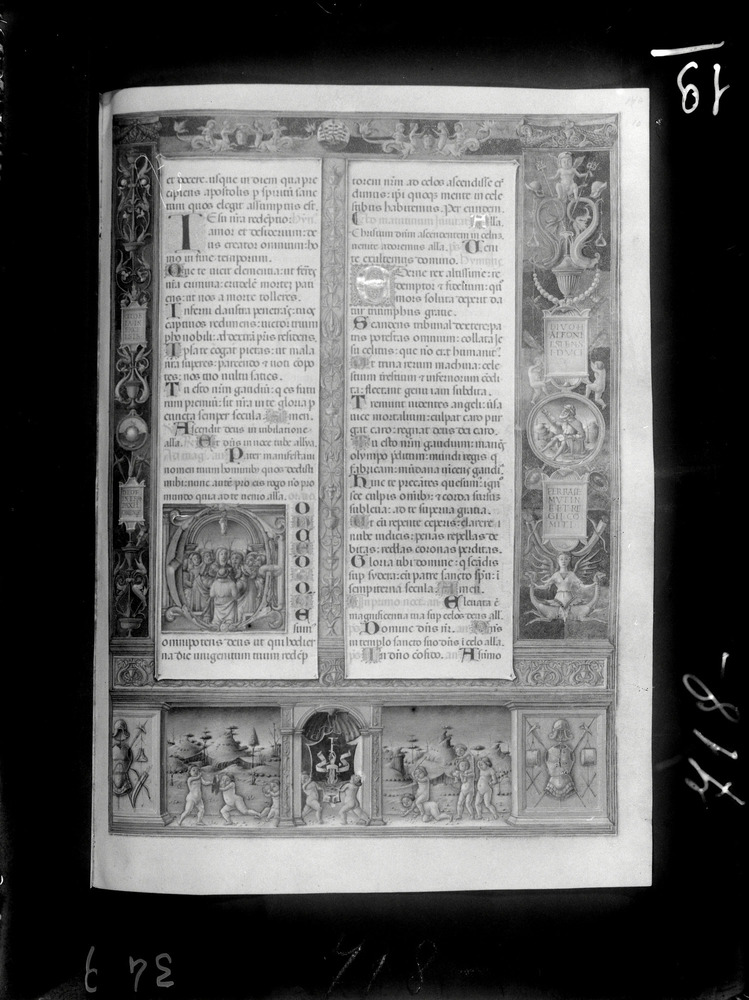 et docere. usque in diem qua pre
cipiens apostolis p spiritū sanc
tum quos elegit assumptus est.
IEsu nr̄a redēptio: Hyn.
amor et desiderium: de
us creator omnium: ho
mo in fine temporum.
Que te uicit clementia: ut ferēs
nr̄a crimina: crudelē mortē pati
ens: ut nos a morte tolleres.
Inferni claustra penetrās: tuos
captiuos redimens: uictor trium
pho nobili: ad dextrā pr̄is residens.
Ipsa te cogat pietas: ut mala
nr̄a superes: parcendo & uoti cōpo
tes: nos tuo uultu saties.
Tu esto nr̄m gaudiū: q es futu
rum premiū: sit nr̄a in te gloria p
cuncta semper secula. Amen.
Ascendit deus in iubilatione
alla. Et dn̄s in uoce tube alla.
Ad mag. an. Pater manifestaui
nomen tuum hominibus quos dedisti
mihi: nunc autē pro eis rogo nō pro
mundo quia ad te uenio alla.
sunt
omnipotens deus ut qui hodier
na die unigenitum tuum redēp
torem nr̄m ad celos ascendisse cr̄
dimus: ipi quoqs mente in cele
stibus habitemus. Per eundem.
Ad matutinum inuitat. Alla.
Christum dn̄m ascendentem in celū,
uenite adoremus alla. ps. Ueni
te exultemus domino. Hymnus.
Eterne rex altissime: re
demptor & fidelium: quo
mors soluta deperit da
tur triumphus gratie.
Scandens tribunal dextere: pa
tris potestas omnium: collata Ie
su celitus: que nō erat humanit'.
Ut trina rerum machina: cele
stium trestium & infernorum: cōdi
ta: flectant genu iam subdita.
Tremunt uidentes angeli: uersa
uice mortalium: culpat caro pur
gat caro: regnat deus dei caro.
Tu esto nr̄m gaudium: manēs
olympo pditum: mundi regis q
fabricam: mūdana uicens gaudia.
Hinc te precātes quesum: ign
sce culpis omib': & corda sursus
subleua: ad te superna gratia.
Ut cū repente ceperis: clarere i
nube iudicis: penas repellas de
bitas: reddas coronas perditas.
Gloria tibi domine: q scādis
sup sydera: cū patre sancto spu: i
sempiterna secula. Amen.
In primo noct. an. Eleuata ē
magnificentia tua sup celos deus all.
ps. Domine dn̄s nr̄. an. Dn̄s
in templo sancto suo dn̄s i celo alla.
ps. In dn̄o cōfido. an. A sūmo
DIVO H
FERRARIE
MVTIN
E ET RE
GII CO
MITI
19
718
718
349